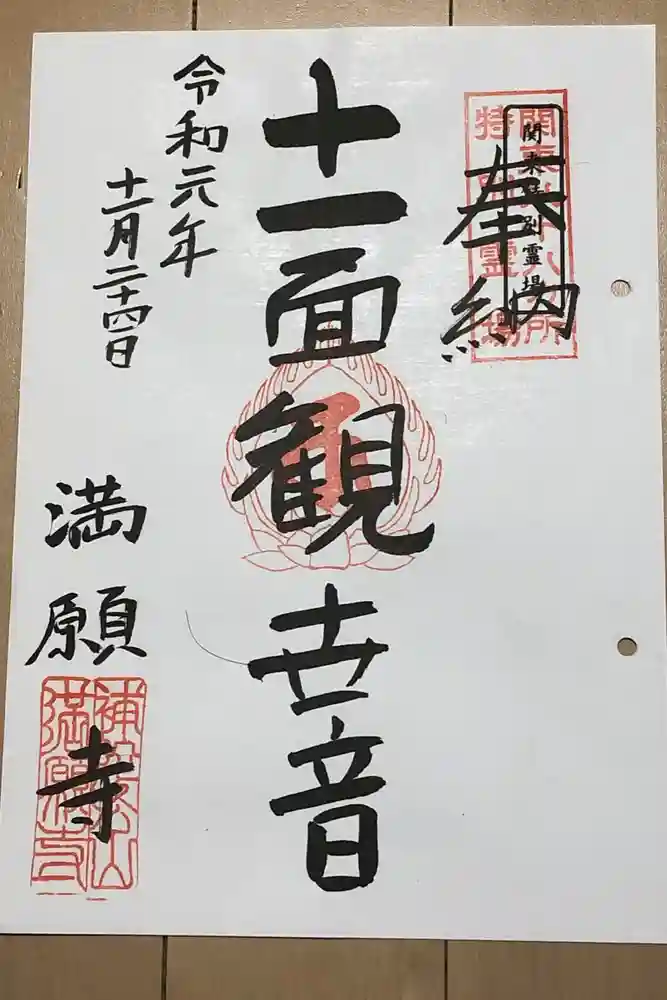 奉納
関東八十八ヵ所
特別霊場
関東特別霊場
十一面観世音
令和元年
十一月二十四日
満願寺
補陀洛山
満願寺